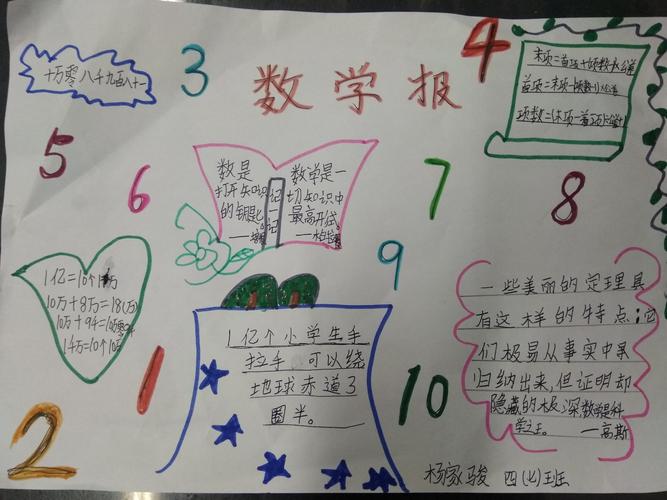 数学报
3
4
5
6
7
8
9
10
1
2
十万零八千九百八十一
末项=首项+(项数-1)×公差
首项=末项-(项数-1)×公差
项数=(末项-首项)÷公差+1
数是
打开知识
的钥匙
记一记
数学是一
切知识中
最高形式
——柏拉
1亿=10个1千万
10万+8万=18(万)
10万+94=10万零94
1亿个小学生手
拉手,可以绕
地球赤道3
圈半。
一些美丽的定理具
有这样的特点:它
们极易从事实中
归纳出来,但证明却
隐藏的极深数学是科
学之王。 —高斯
杨家骏 四(七)班